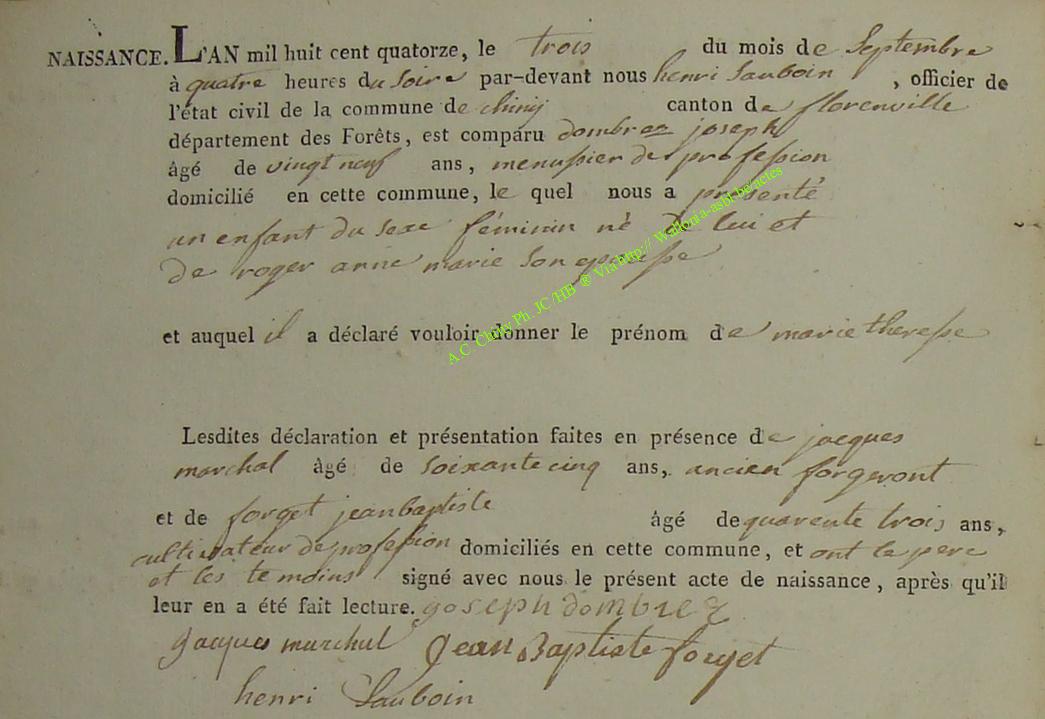 NAISSANCE. L'AN mil huit cent quatorze, le trois du mois de Septembre
à quatre heures du soire par-devant nous henri Sauboin, officier de
l'état civil de la commune de chiny canton de florenville
département des Forêts, est comparu dombrez joseph
âgé de vingt neuf ans, menussier de profession
domicilié en cette commune, le quel nous a présenté
un enfant du sexe féminin né de lui et
de roger anne marie son epousse
et auquel il a déclaré vouloir donner le prénom de marie theresse
A.C Chiny Ph. JC /HB @ Via http:// Wallonia-asbl-be/actes
Lesdites déclaration et présentation faites en présence de jacques
marchal âgé de soixante cinq ans, ancien forgeront
et de forget jean baptiste âgé de quarente trois ans,
cultivateur de profession domiciliés en cette commune, et ont le pere
et les temoins signé avec nous le présent acte de naissance, après qu'il
leur en a été fait lecture. joseph dombrez
jacques marchal Jean Baptiste forget
henri Sauboin